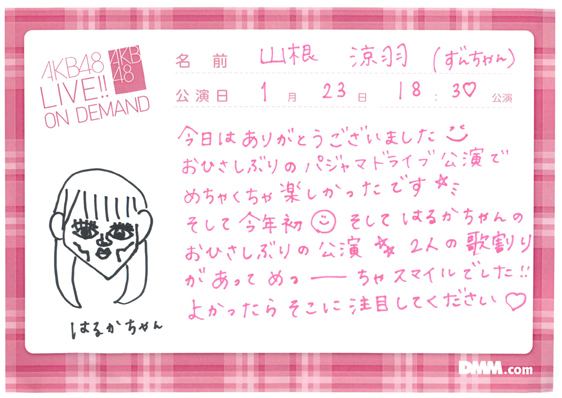 AKB48
LIVE!!
ON DEMAND
AKB
48
名前 山根 涼羽 (ずんちゃん)
公演日 1月23日 18:30公演
今日はありがとうございました
おひさしぶりのパジャマドライブ公演で
めちゃくちゃ楽しかったです
そして今年初 そしてはるかちゃんの
おひさしぶりの公演 2人の歌割り
があってめっーちゃスマイルでした!!
よかったらそこに注目してください♡
はるかちゃん
DMM.com